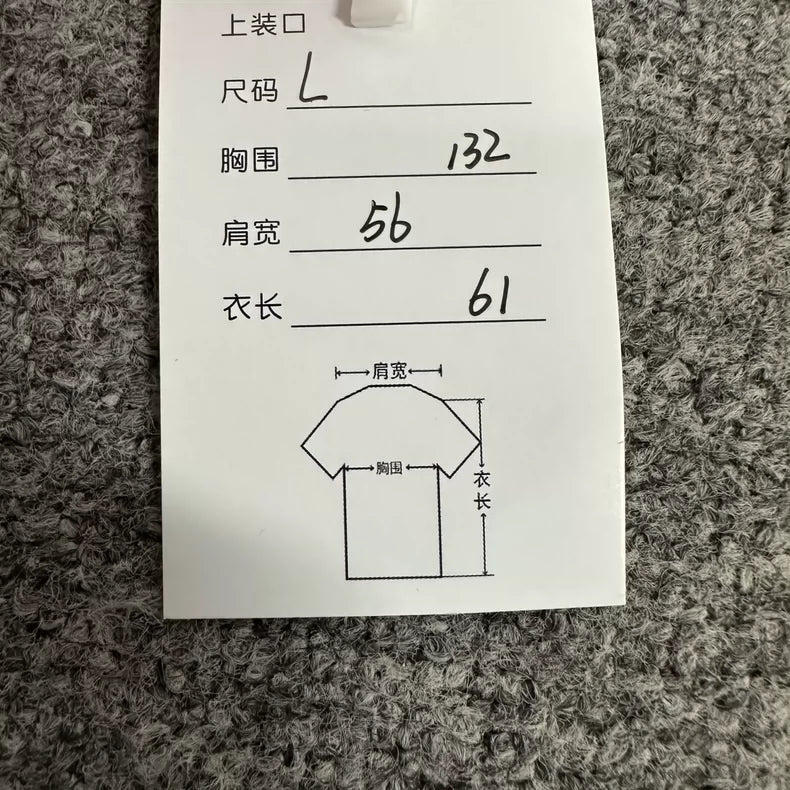 上装口
尺码 L
胸围 132
肩宽 56
衣长 61
肩宽
胸围
衣长